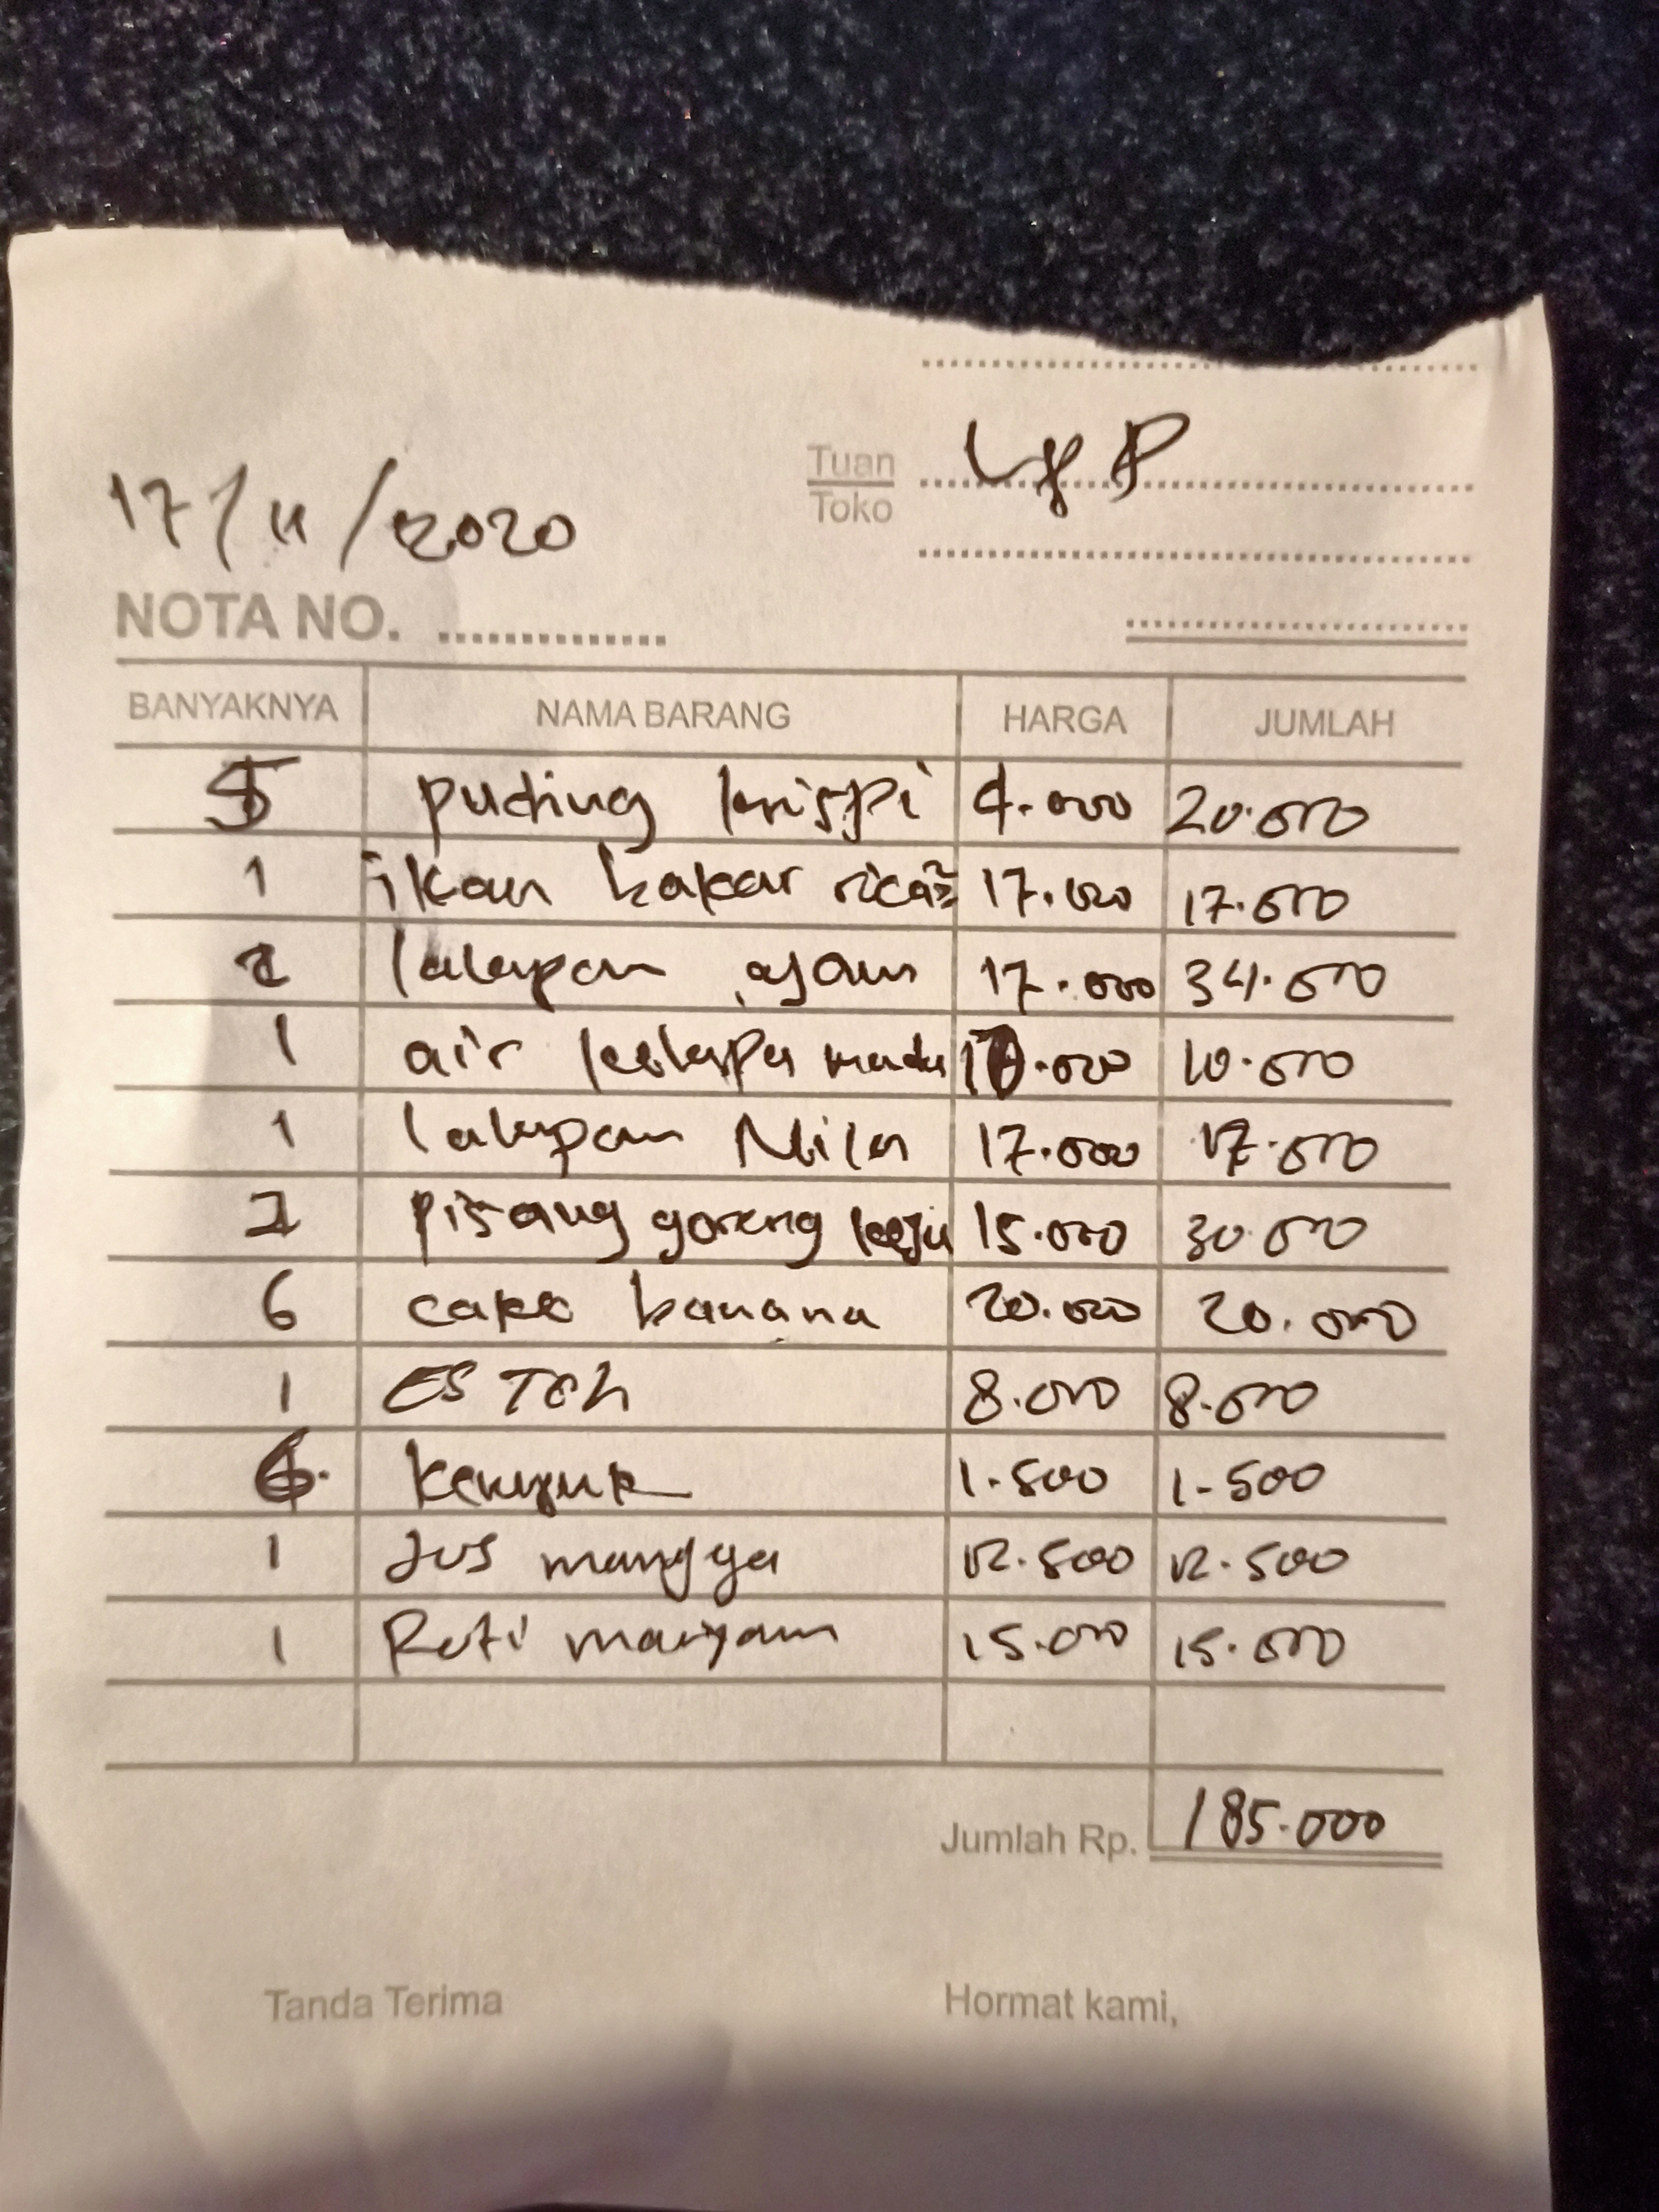 Tuan
Toko
17/11/2020
NOTA NO. ..............
BANYAKNYA NAMA BARANG HARGA JUMLAH
5 puding krispi 4.000 20.000
1 ikan bakar rica² 17.000 17.000
2 lalapan ayam 17.000 34.000
1 air kelapa madu 10.000 10.000
1 lalapan Nila 17.000 17.000
2 pisang goreng keju 15.000 30.000
6 cake banana 20.000 20.000
1 ES TEh 8.000 8.000
kerupuk 1.500 1.500
1 Jus mangga 12.500 12.500
1 Roti maryam 15.000 15.000
Jumlah Rp. 185.000
Tanda Terima Hormat kami,